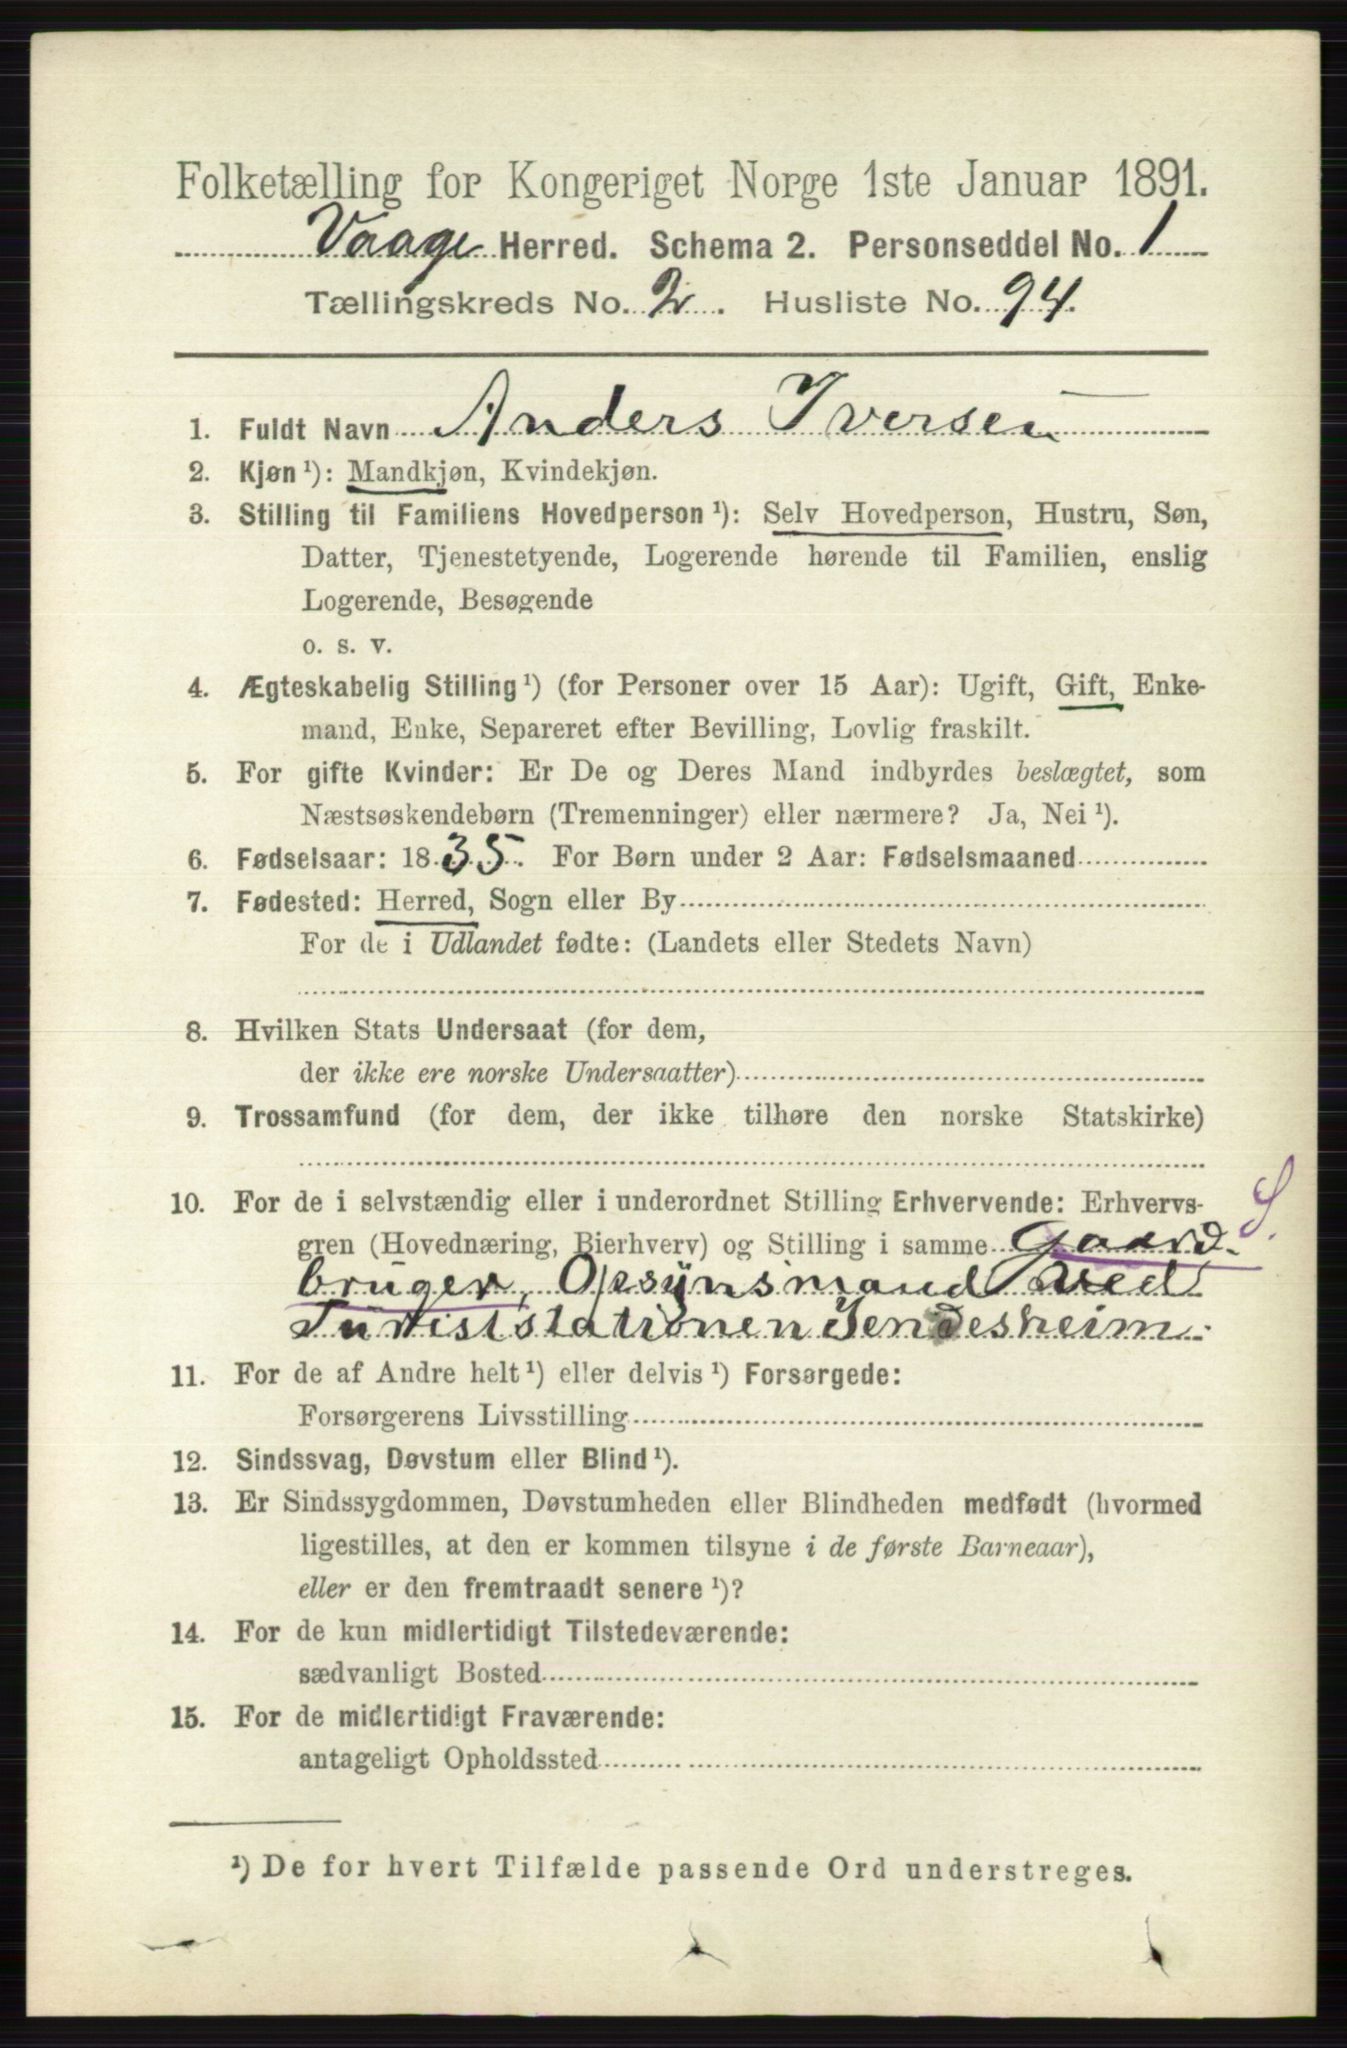 Folketælling for Kongeriget Norge 1ste Januar 1891.
Vaage Herred. Schema 2. Personseddel No. 1
Tællingskreds No. 2. Husliste No. 94.
1. Fuldt Navn Anders Iversen
2. Kjøn¹): Mandkjøn, Kvindekjøn.
3. Stilling til Familiens Hovedperson¹): Selv Hovedperson, Hustru, Søn,
Datter, Tjenestetyende, Logerende hørende til Familien, enslig
Logerende, Besøgende
o. s. v.
4. Ægteskabelig Stilling¹) (for Personer over 15 Aar): Ugift, Gift, Enke-
mand, Enke, Separeret efter Bevilling, Lovlig fraskilt.
5. For gifte Kvinder: Er De og Deres Mand indbyrdes beslægtet, som
Næstsøskendebørn (Tremenninger) eller nærmere? Ja, Nei¹).
6. Fødselsaar: 1835. For Børn under 2 Aar: Fødselsmaaned
7. Fødested: Herred, Sogn eller By
For de i Udlandet fødte: (Landets eller Stedets Navn)
8. Hvilken Stats Undersaat (for dem,
der ikke ere norske Undersaatter)
9. Trossamfund (for dem, der ikke tilhøre den norske Statskirke)
10. For de i selvstændig eller i underordnet Stilling Erhvervende: Erhvervs-
gren (Hovednæring, Bierhverv) og Stilling i samme Gaard- S.
bruger, Opsynsmand ved
Turiststationen Jendesheim.
11. For de af Andre helt¹) eller delvis¹) Forsørgede:
Forsørgerens Livsstilling
12. Sindssvag, Døvstum eller Blind¹).
13. Er Sindssygdommen, Døvstumheden eller Blindheden medfødt (hvormed
ligestilles, at den er kommen tilsyne i de første Barneaar),
eller er den fremtraadt senere¹)?
14. For de kun midlertidigt Tilstedeværende:
sædvanligt Bosted
15. For de midlertidigt Fraværende:
antageligt Opholdssted
¹) De for hvert Tilfælde passende Ord understreges.